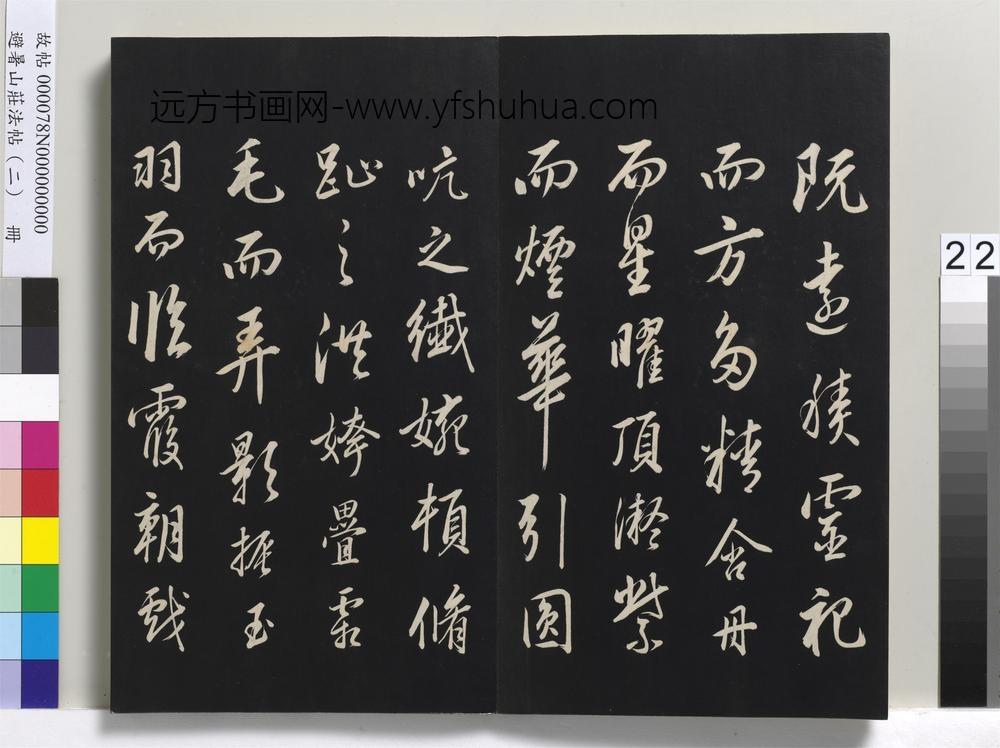 远方书画网-www.yfshuhua.com
既遠積靈祀
而方多精含丹
而星曜頂凝紫
而煙華引圓
吭之纖婉頓脩
趾之洪姱疊霜
毛而弄影振玉
羽而臨霞朝戲
故帖 000078N000000000
避暑山莊法帖(二) 冊
22